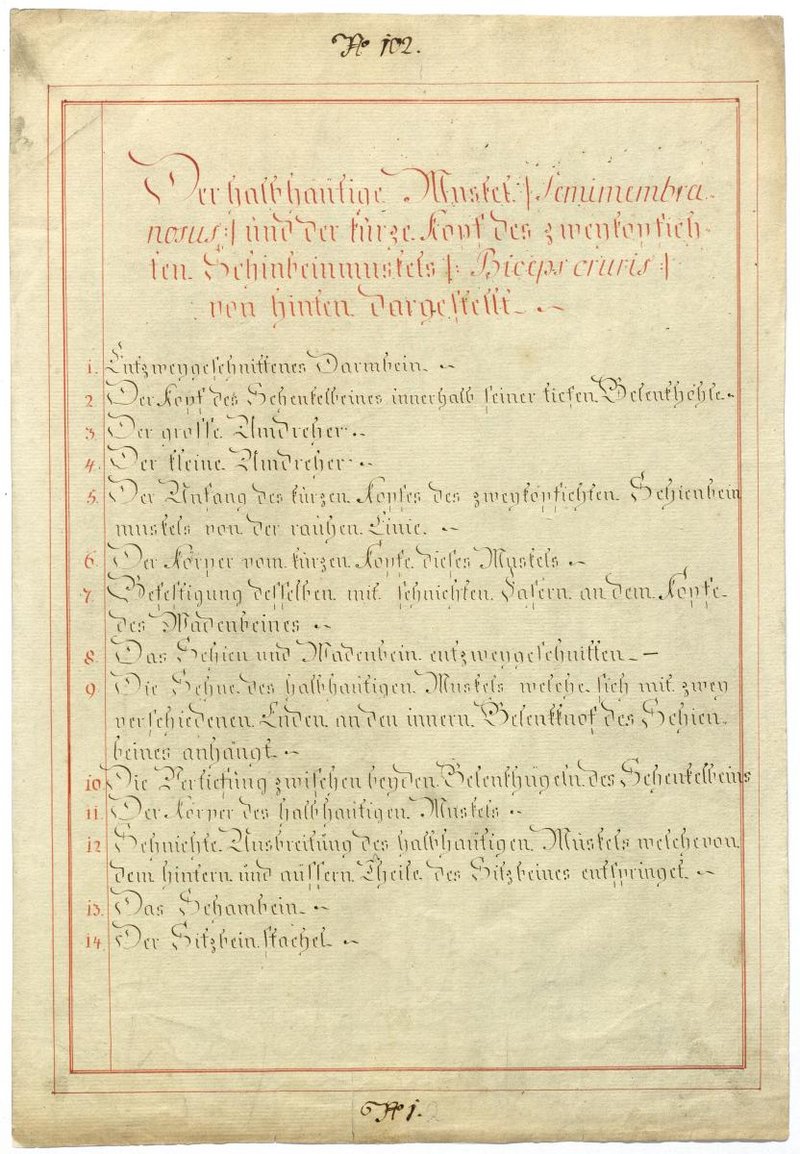 No 102.
Der halbhäutige Muskel |: Semimembra-
nosus :| und der kurze Kopf des zweyköpfich-
ten Schinbeinmuskels |: Biceps cruris :|
von hinten dargestellt.
1. Entzweygeschnittenes Darmbein.
2 Der Kopf des Schenkelbeines innerhalb seiner tiefen Gelenkhöhle.
3. Der grosse Umdreher.
4. Der kleine Umdreher.
5. Der Anfang des kurzen Kopfes des zweyköpfichten Schienbein
muskels von der rauhen Linie.
6. Der Körper vom kurzen Kopfe dieses Muskels
7. Befestigung desselben mit sehnichten Fasern an dem Kopfe
des Wadenbeines
8. Das Schien und Wadenbein entzweygeschnitten.
9 Die Sehne des halbhäutigen Muskels welche sich mit zwey
verschiedenen Enden an den innern Gelenkknof des Schien-
beines anhängt.
10. Die Vertiefung zwischen beyden Gelenkhügeln des Schenkelbeins
11. Der Körper des halbhäutigen Muskels
12 Sehnichte Ausbreitung des halbhäutigen Muskels welche von
dem hintern und äussern Theile des Sitzbeines entspringet.
13. Das Schambein.
14. Der Sitzbein stachel.
No 1.